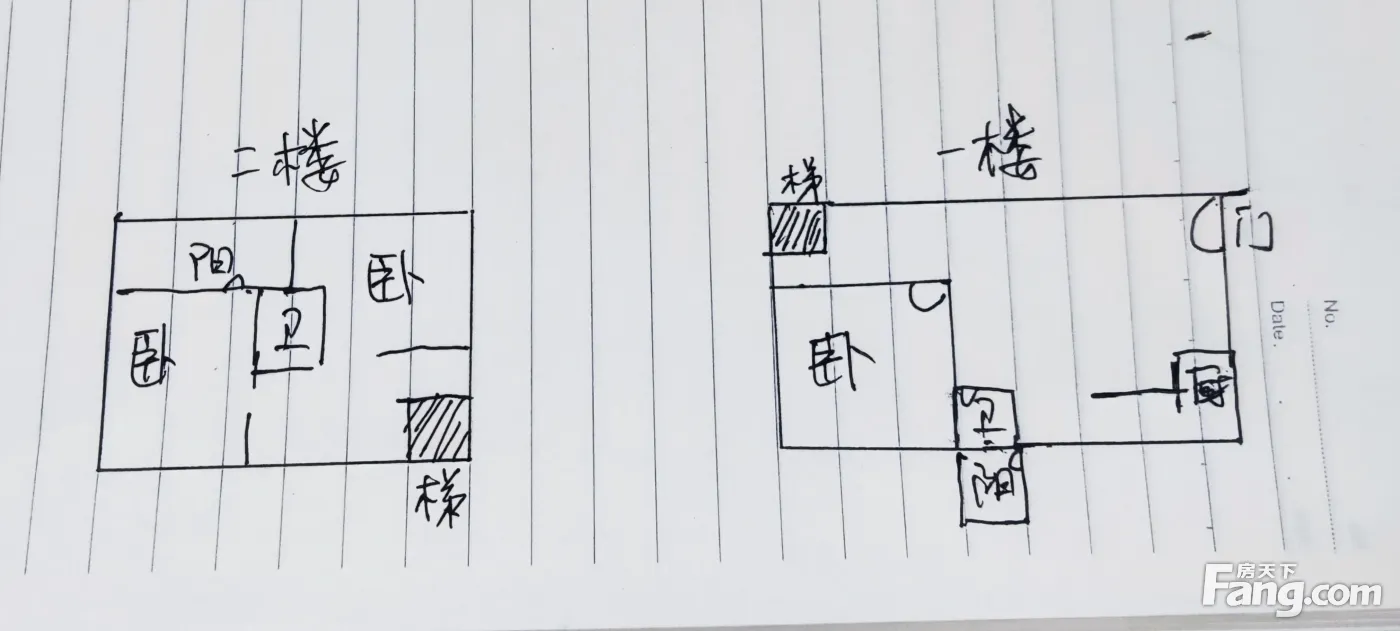 二楼
阳
卧
卧
卫
梯
一楼
梯
门
卧
卫
厨
No.
Date.
房天下
Fang.com